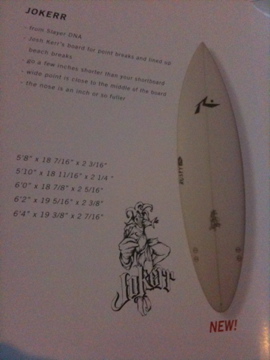 JOKERR
- from Slayer DNA
- Josh Kerr's board for point breaks and lined up
beach breaks
- go a few inches shorter than your shortboard
- wide point is close to the middle of the board
- the nose is an inch or so fuller
5'8" x 18 7/16" x 2 3/16"
5'10" x 18 11/16" x 2 1/4 "
6'0" x 18 7/8" x 2 5/16"
6'2" x 19 5/16" x 2 3/8"
6'4" x 19 3/8" x 2 7/16"
Jokerr
NEW!